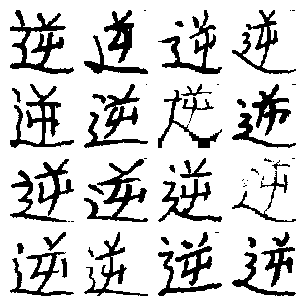 逆逆逆逆
逆逆逆逆
逆逆逆逆
逆逆逆逆